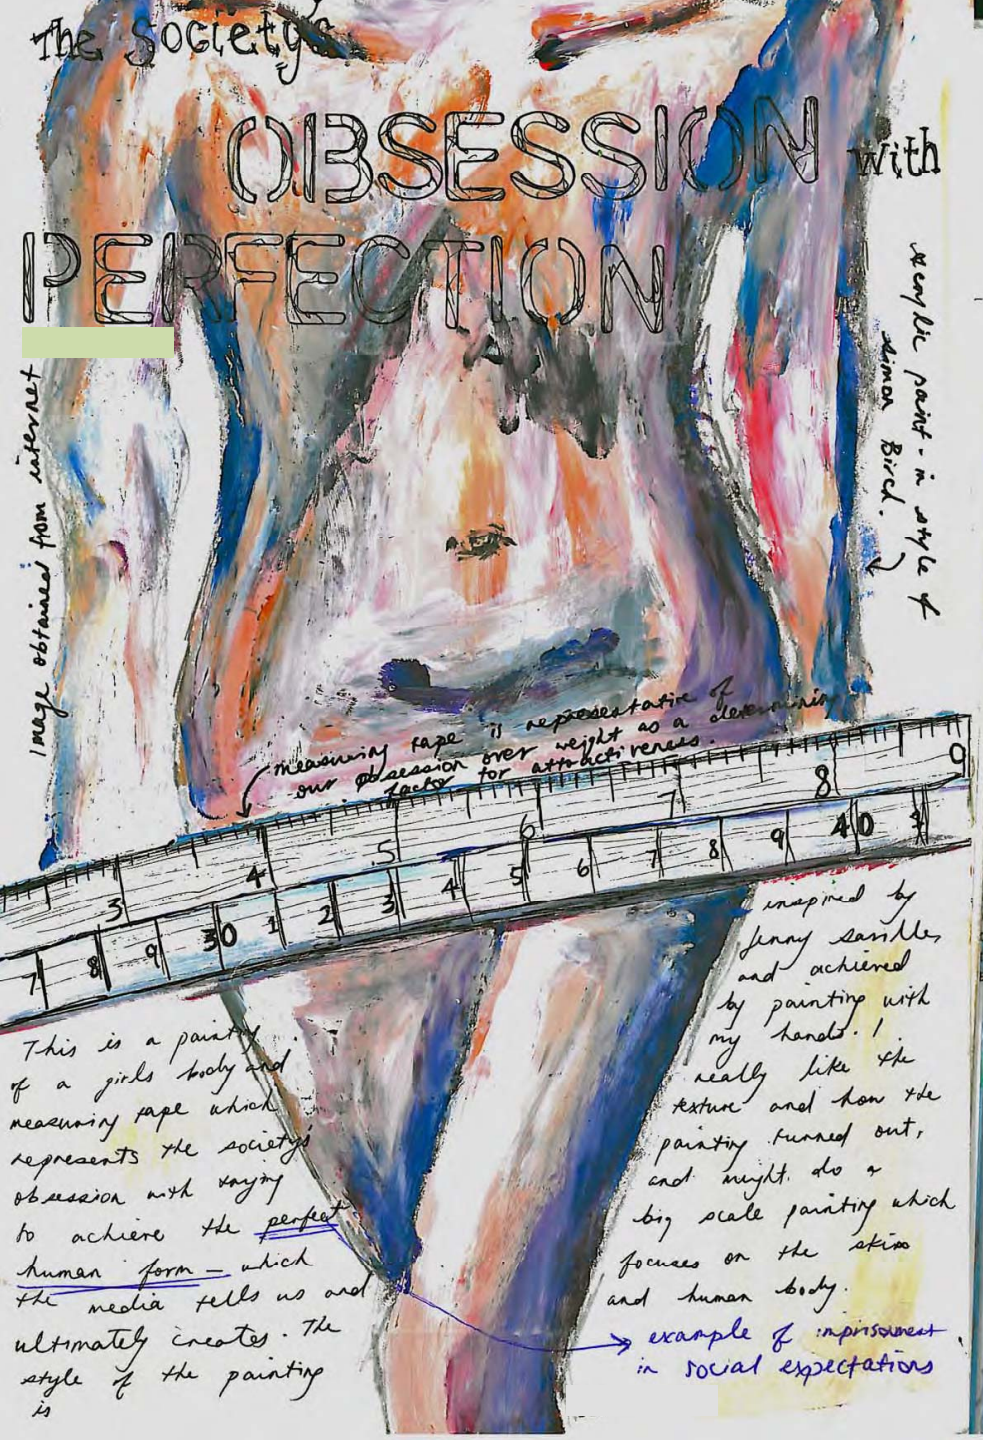 The Society's
OBSESSION with
PERFECTION
acrylic paint - in style of
simon Birch.
Image obtained from internet
measuring tape is representative of
our obsession over weight as a determining
factor for attractiveness.
3 4 5 6 7 8 9
7 8 9 30 1 2 3 4 5 6 7 8 9 40 1
This is a painting
of a girls body and
measuring tape which
represents the society's
obsession with trying
to achieve the perfect
human form - which
the media tells us and
ultimately creates. The
style of the painting
is
inspired by
Jenny Savilles
and achieved
by painting with
my hands. I
really like the
texture and how the
painting turned out,
and might do a
big scale painting which
focuses on the skin
and human body.
example of imprisonment
in social expectations